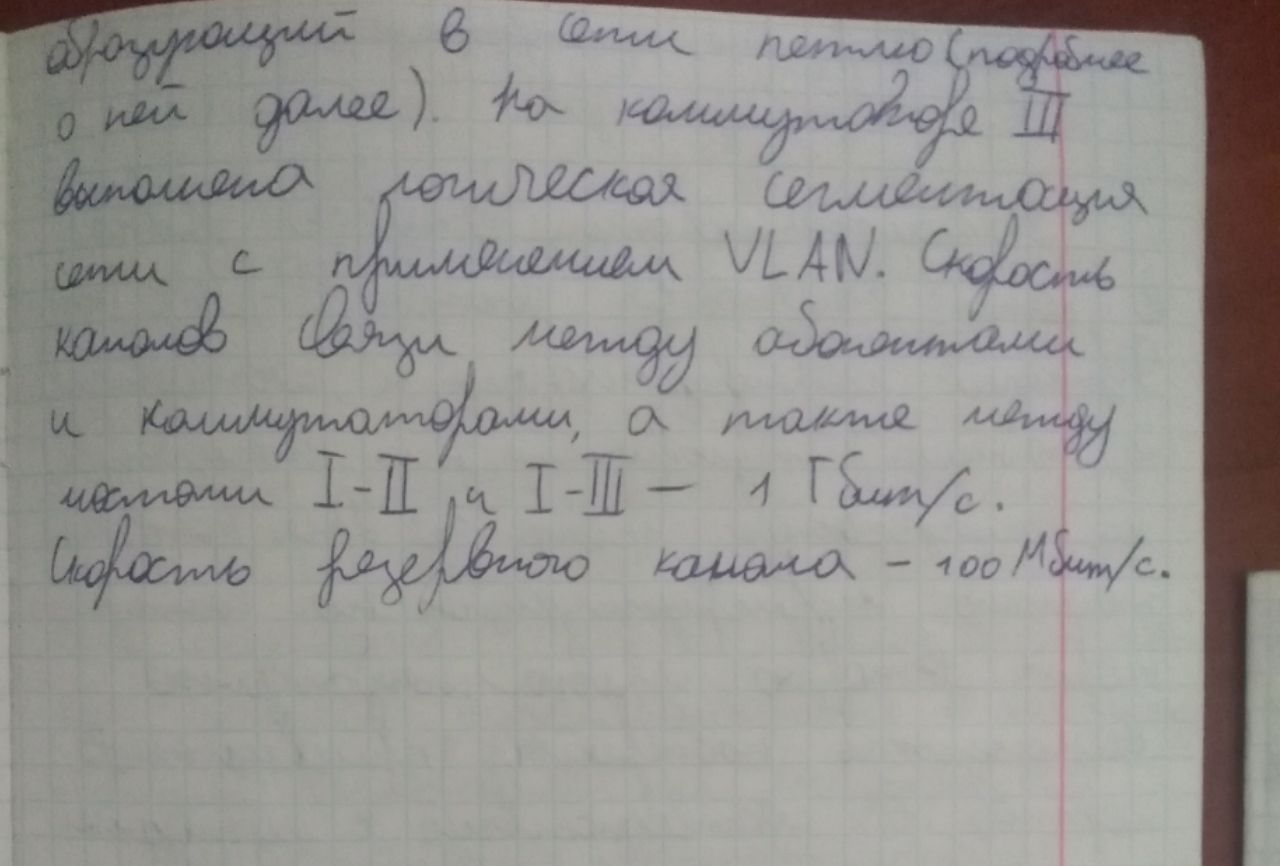 образующий в сети петлю (подробнее
о ней далее). На коммутаторе III
выполнена логическая сегментация
сети с применением VLAN. Скорость
каналов связи между абонентами
и коммутаторами, а также между
мостами I-II и I-III — 1 Гбит/с.
Скорость резервного канала - 100 Мбит/с.